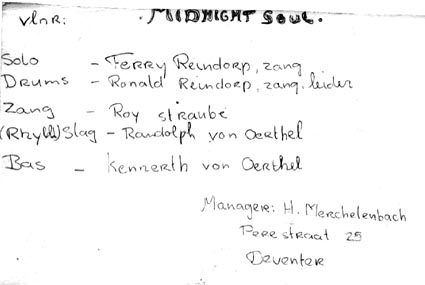 vlnR: · MIDNIGHT SOUL ·
Solo - Ferry Reindorp, zang
Drums - Ronald Reindorp, zang. leider
Zang - Roy Straube
(Rhyth) Slag - Randolph von Oerthel
Bas - Kennerth von Oerthel
Manager: H. Merchelenbach
Peperstraat 25
Deventer